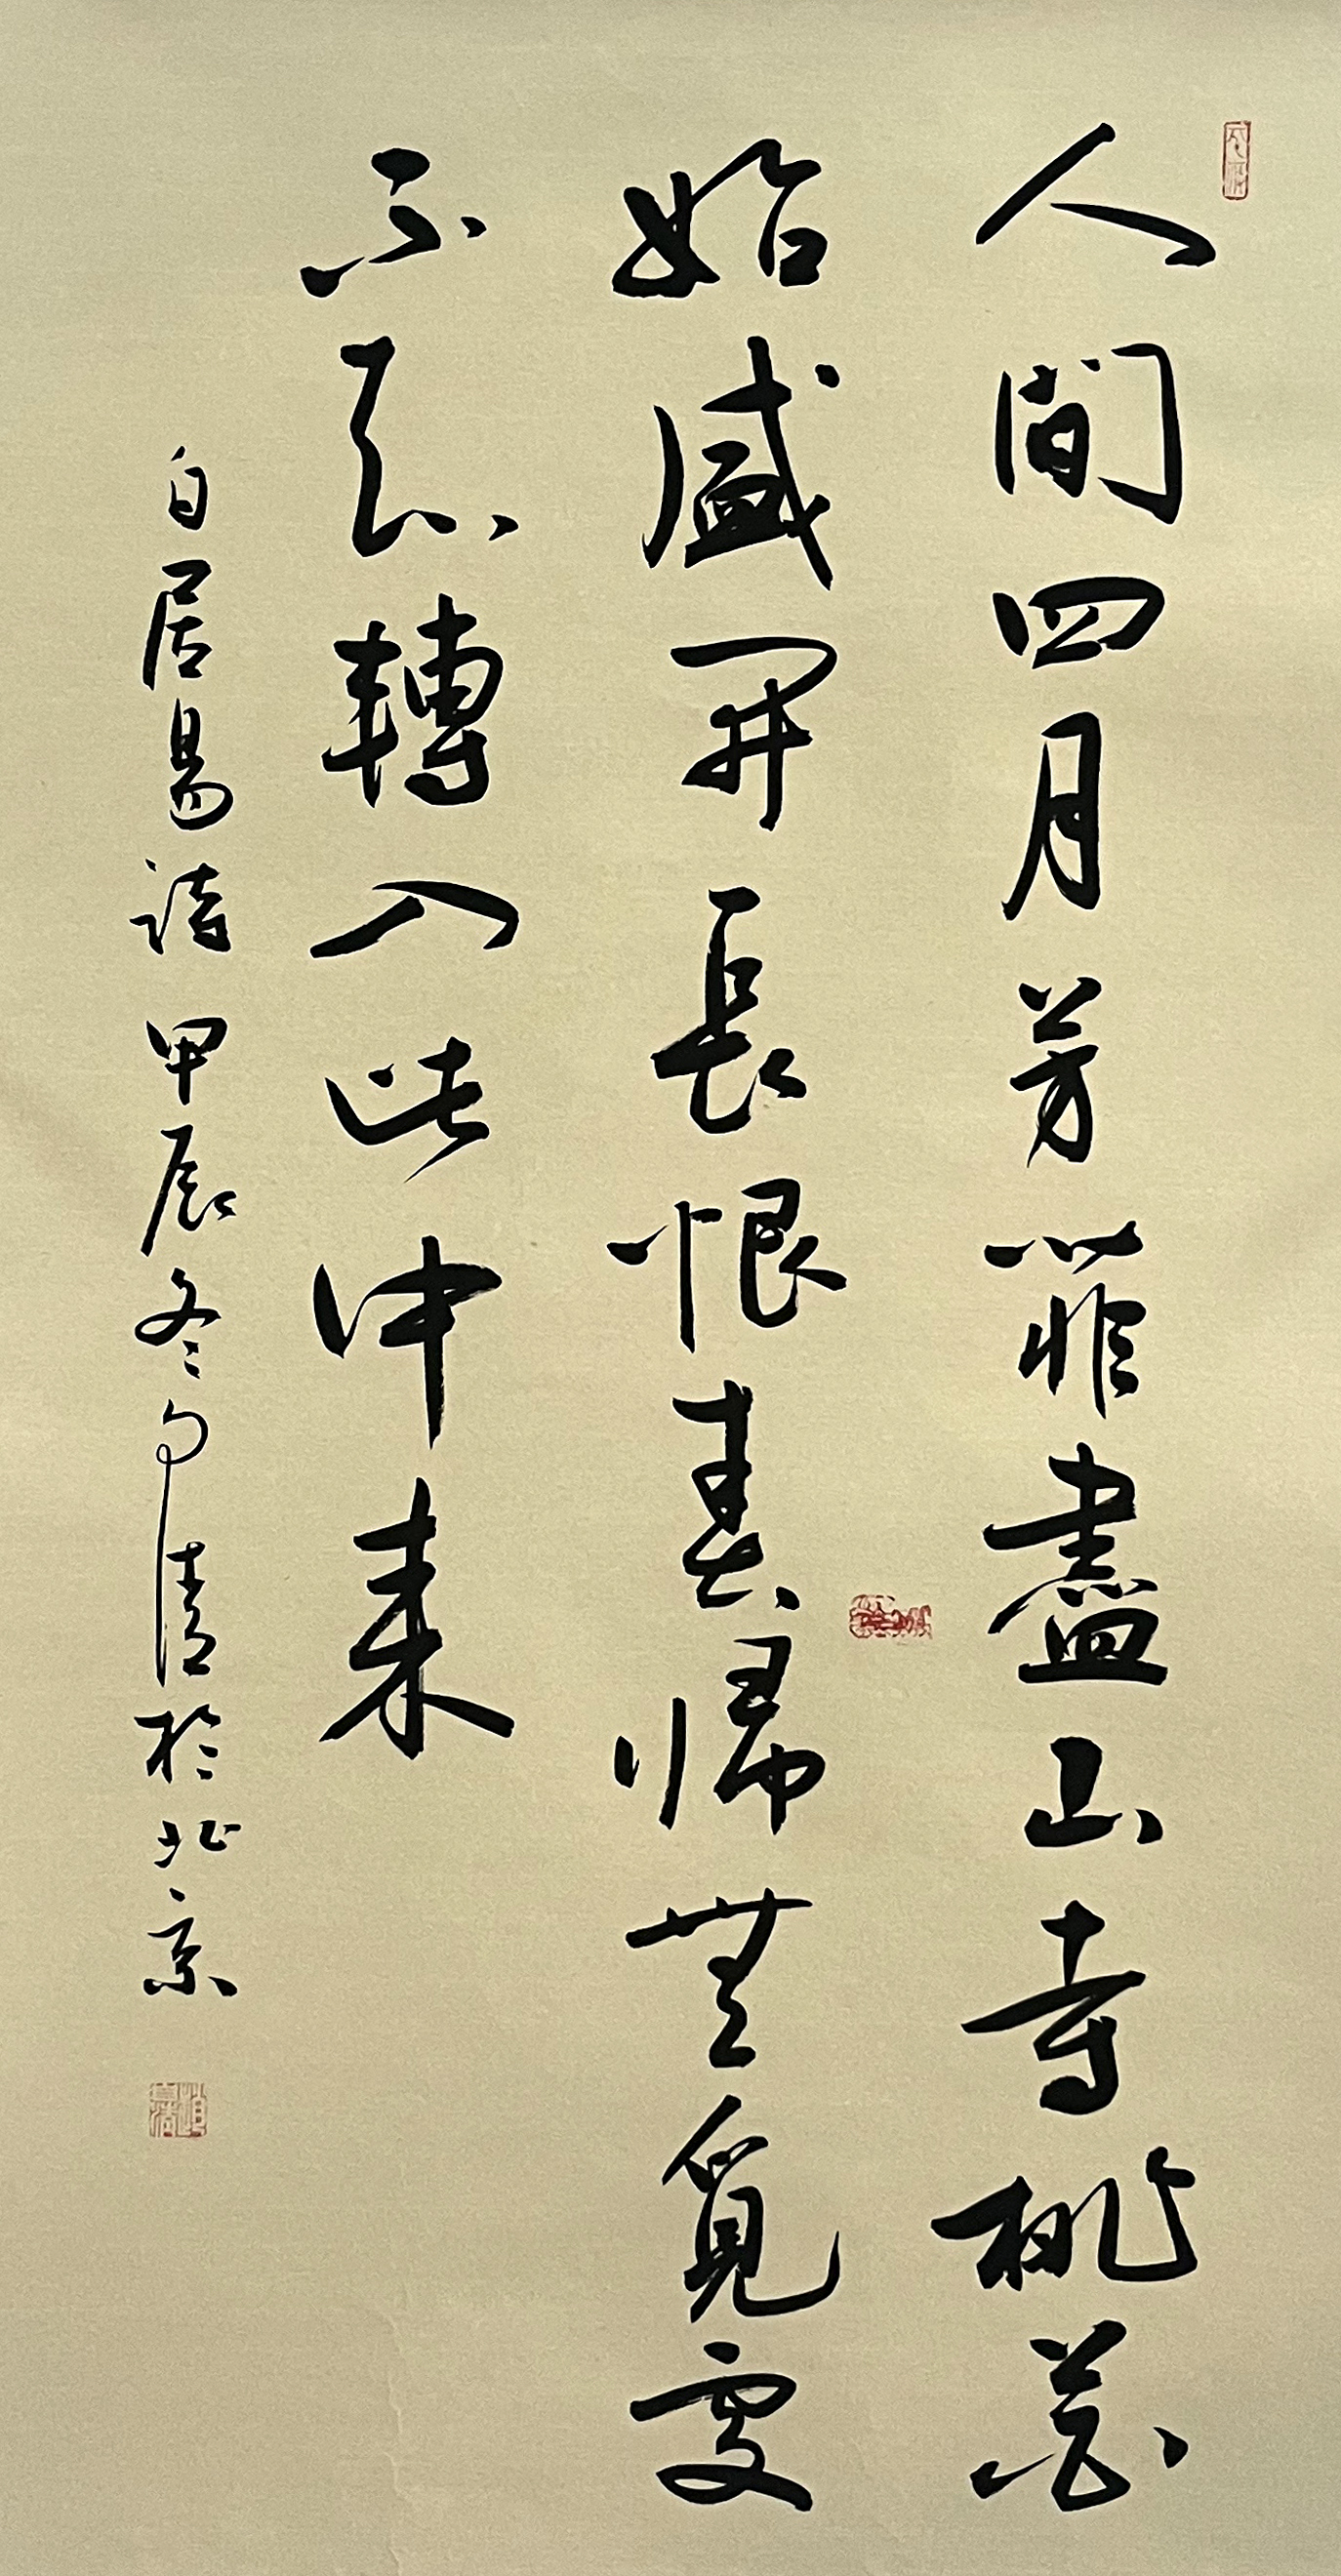 人間四月芳菲盡山寺桃花
始盛開長恨春歸無覓處
不知轉入此中來
白居易詩甲辰冬月清於北京